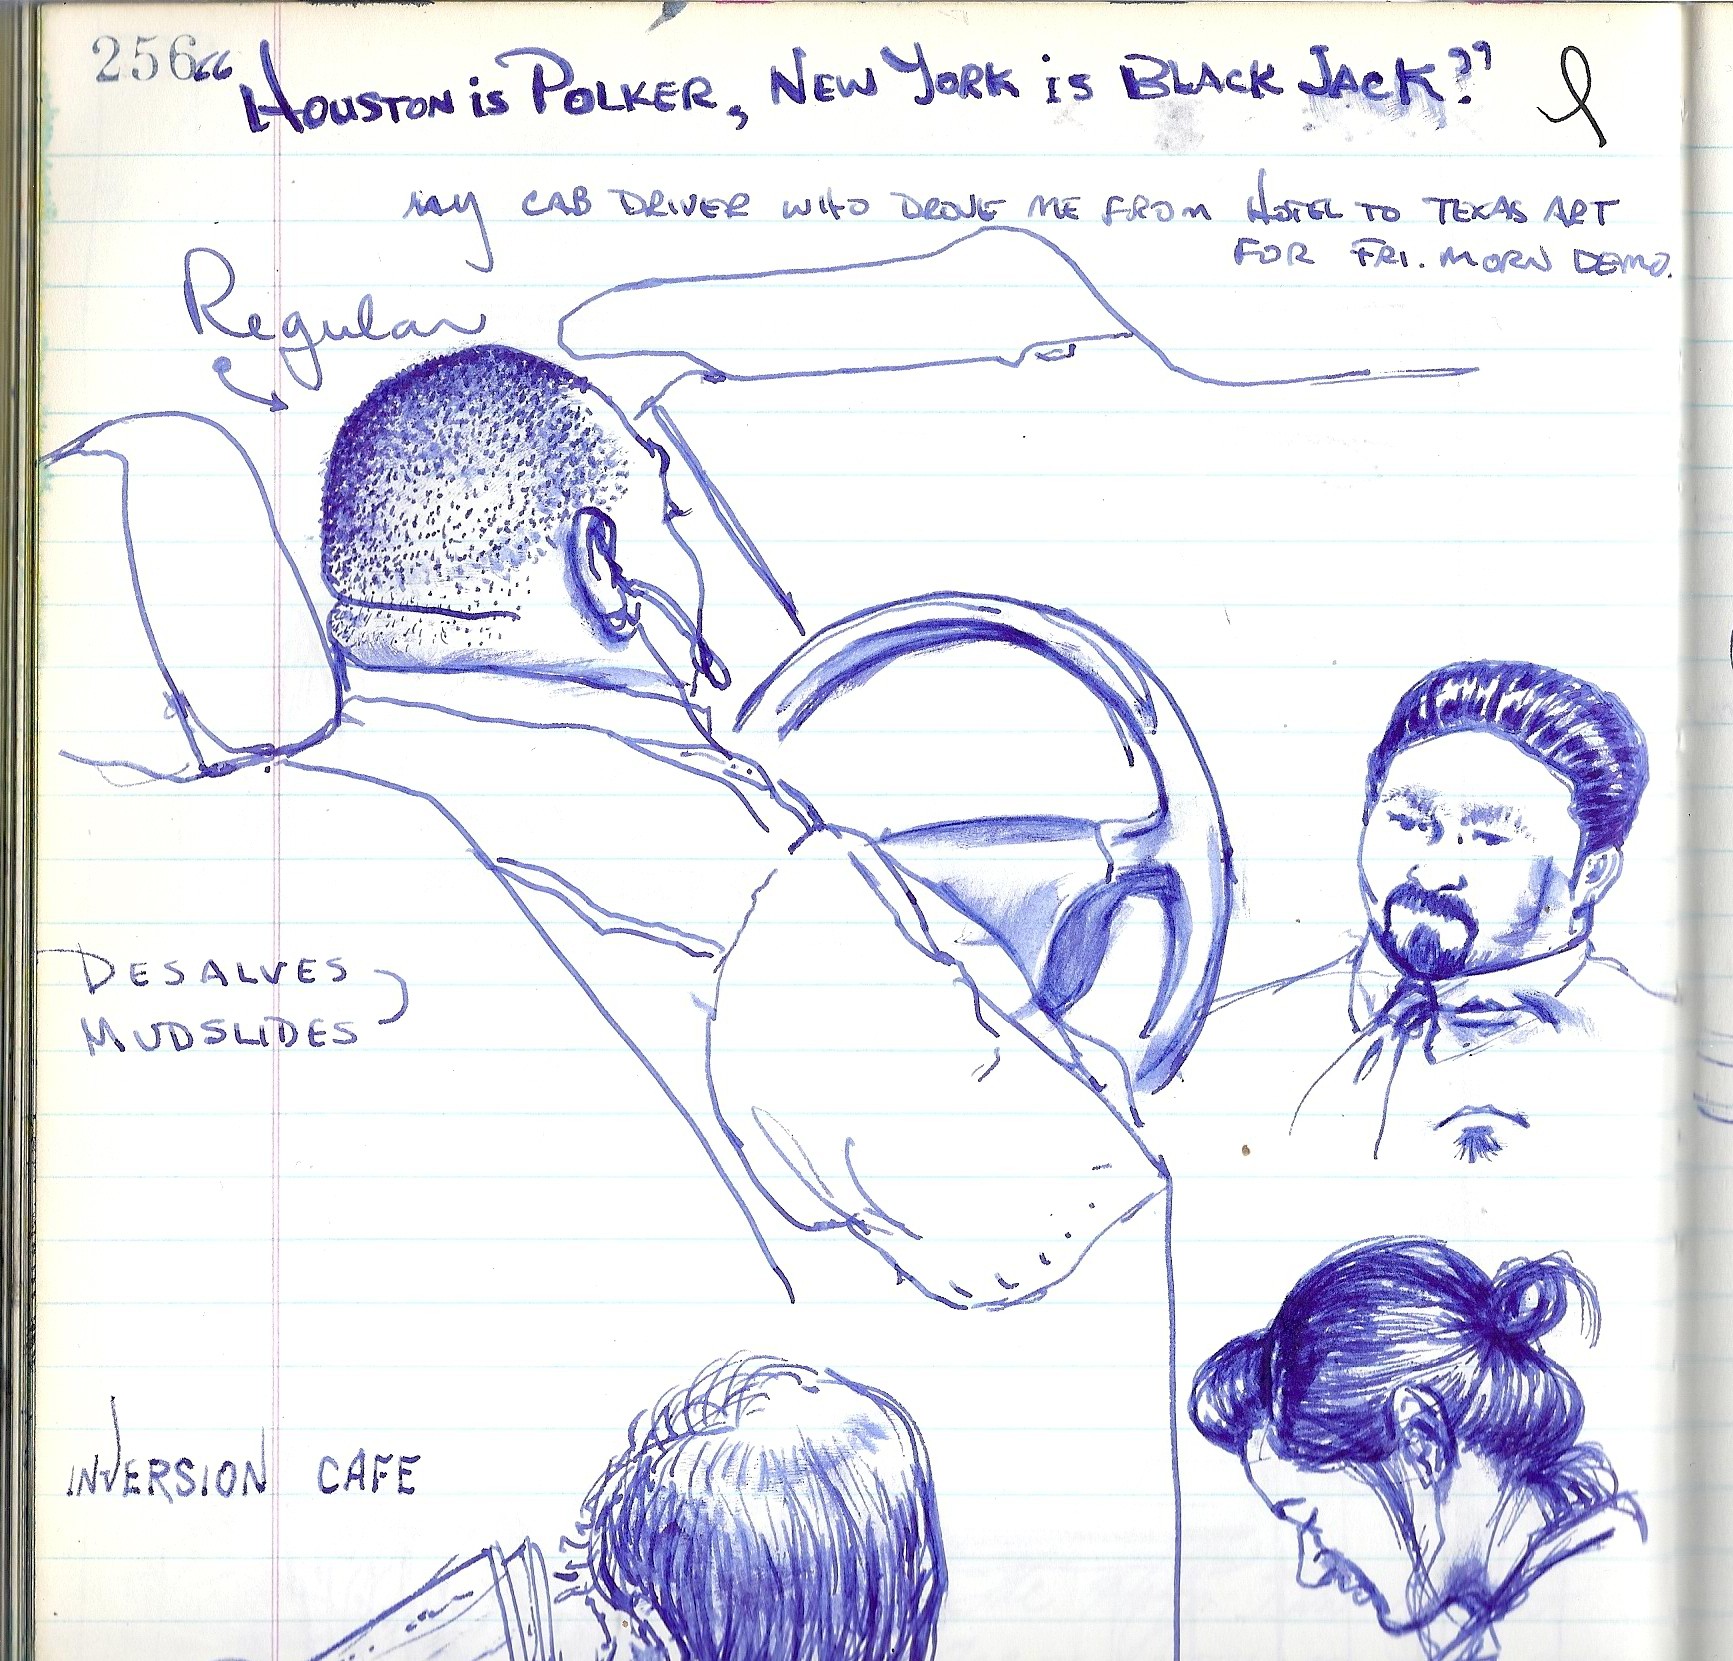 256
"Houston is Polker, New York is Black Jack?"
my cab driver who drove me from Hotel to Texas Art
for Fri. Morn Demo.
Regular
Desalves
Mudslides
Inversion Cafe